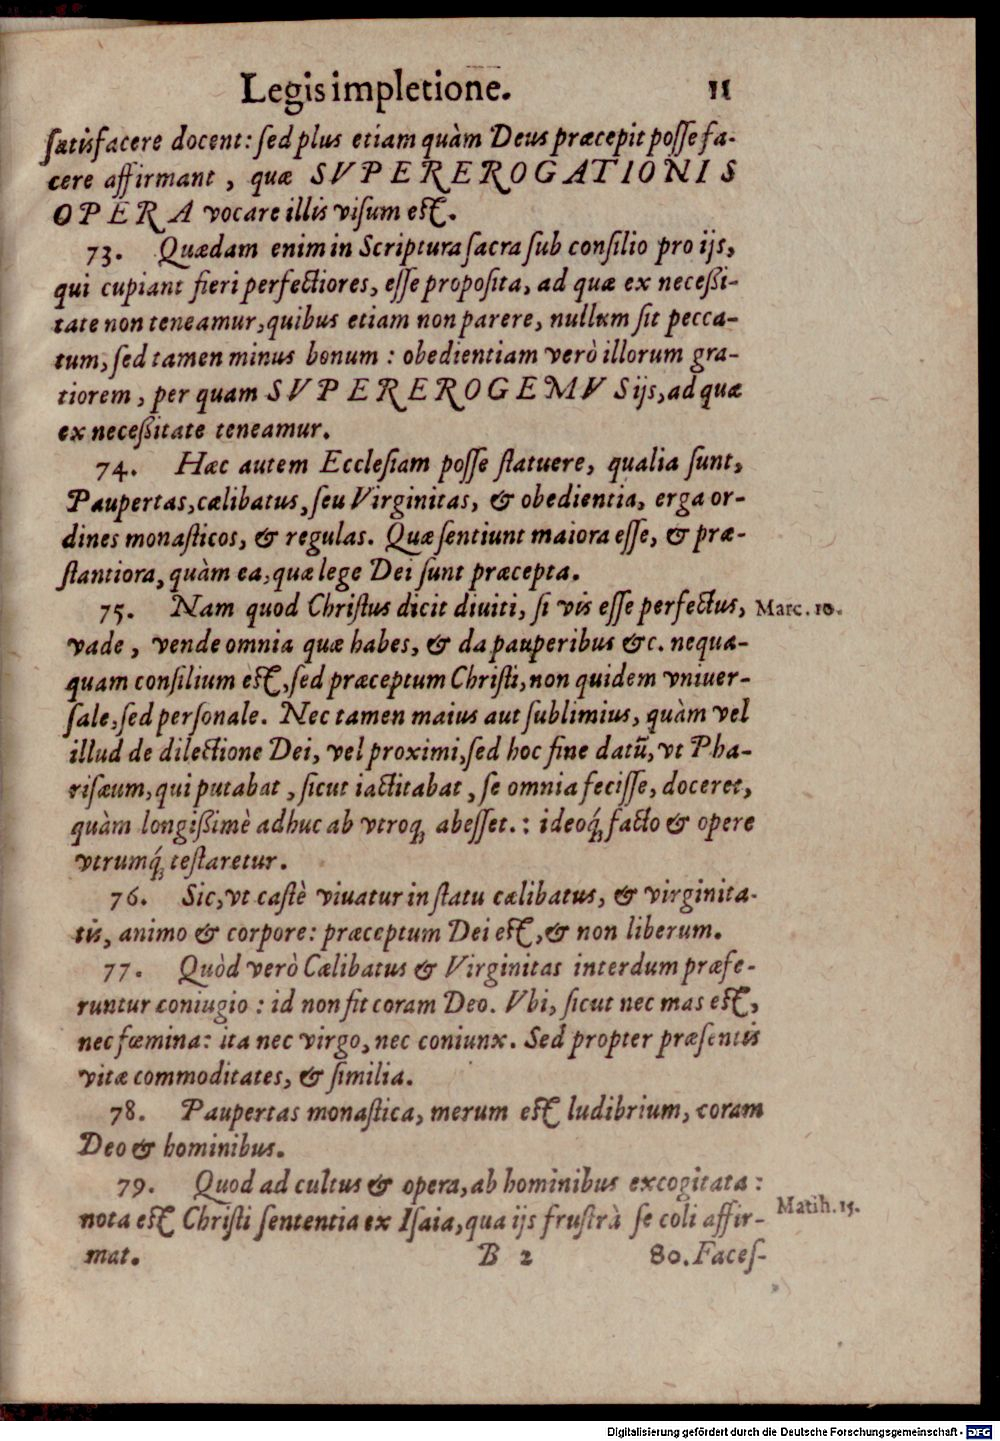 Legis impletione. 11
satisfacere docent: sed plus etiam quàm Deus præcepit posse fa-
cere affirmant, quæ SVPEREROGATIONIS
OPERA vocare illis visum est.
73. Quædam enim in Scriptura sacra sub consilio pro ijs,
qui cupiant fieri perfectiores, esse proposita, ad quæ ex necessi-
tate non teneamur, quibus etiam non parere, nullum sit pecca-
tum, sed tamen minus bonum: obedientiam verò illorum gra-
tiorem, per quam SVPEREROGEMVS ijs, ad quæ
ex necessitate teneamur.
74. Hæc autem Ecclesiam posse statuere, qualia sunt,
Paupertas, cælibatus, seu Virginitas, & obedientia, erga or-
dines monasticos, & regulas. Quæ sentiunt maiora esse, & præ-
stantiora, quàm ea, quæ lege Dei sunt præcepta.
75. Nam quod Christus dicit diuiti, si vis esse perfectus, Marc. 10.
vade, vende omnia quæ habes, & da pauperibus &c. nequa-
quam consilium est, sed præceptum Christi, non quidem vniuer-
sale, sed personale. Nec tamen maius aut sublimius, quàm vel
illud de dilectione Dei, vel proximi, sed hoc fine datũ, vt Pha-
risæum, qui putabat, sicut iactitabat, se omnia fecisse, doceret,
quàm longissimè adhuc ab vtroq; abesset.: ideoq́; facto & opere
vtrumq́; testaretur.
76. Sic, vt castè viuatur in statu cælibatus, & virginita-
tis, animo & corpore: præceptum Dei est, & non liberum.
77. Quòd verò Cælibatus & Virginitas interdum præfe-
runtur coniugio: id non fit coram Deo. Vbi, sicut nec mas est,
nec fœmina: ita nec virgo, nec coniunx. Sed propter præsentis
vitæ commoditates, & similia.
78. Paupertas monastica, merum est ludibrium, coram
Deo & hominibus.
79. Quod ad cultus & opera, ab hominibus excogitata:
nota est Christi sententia ex Isaia, qua ijs frustrà se coli affir- Matth. 15.
mat. B 2 80. Faces-
Digitalisierung gefördert durch die Deutsche Forschungsgemeinschaft - DFG